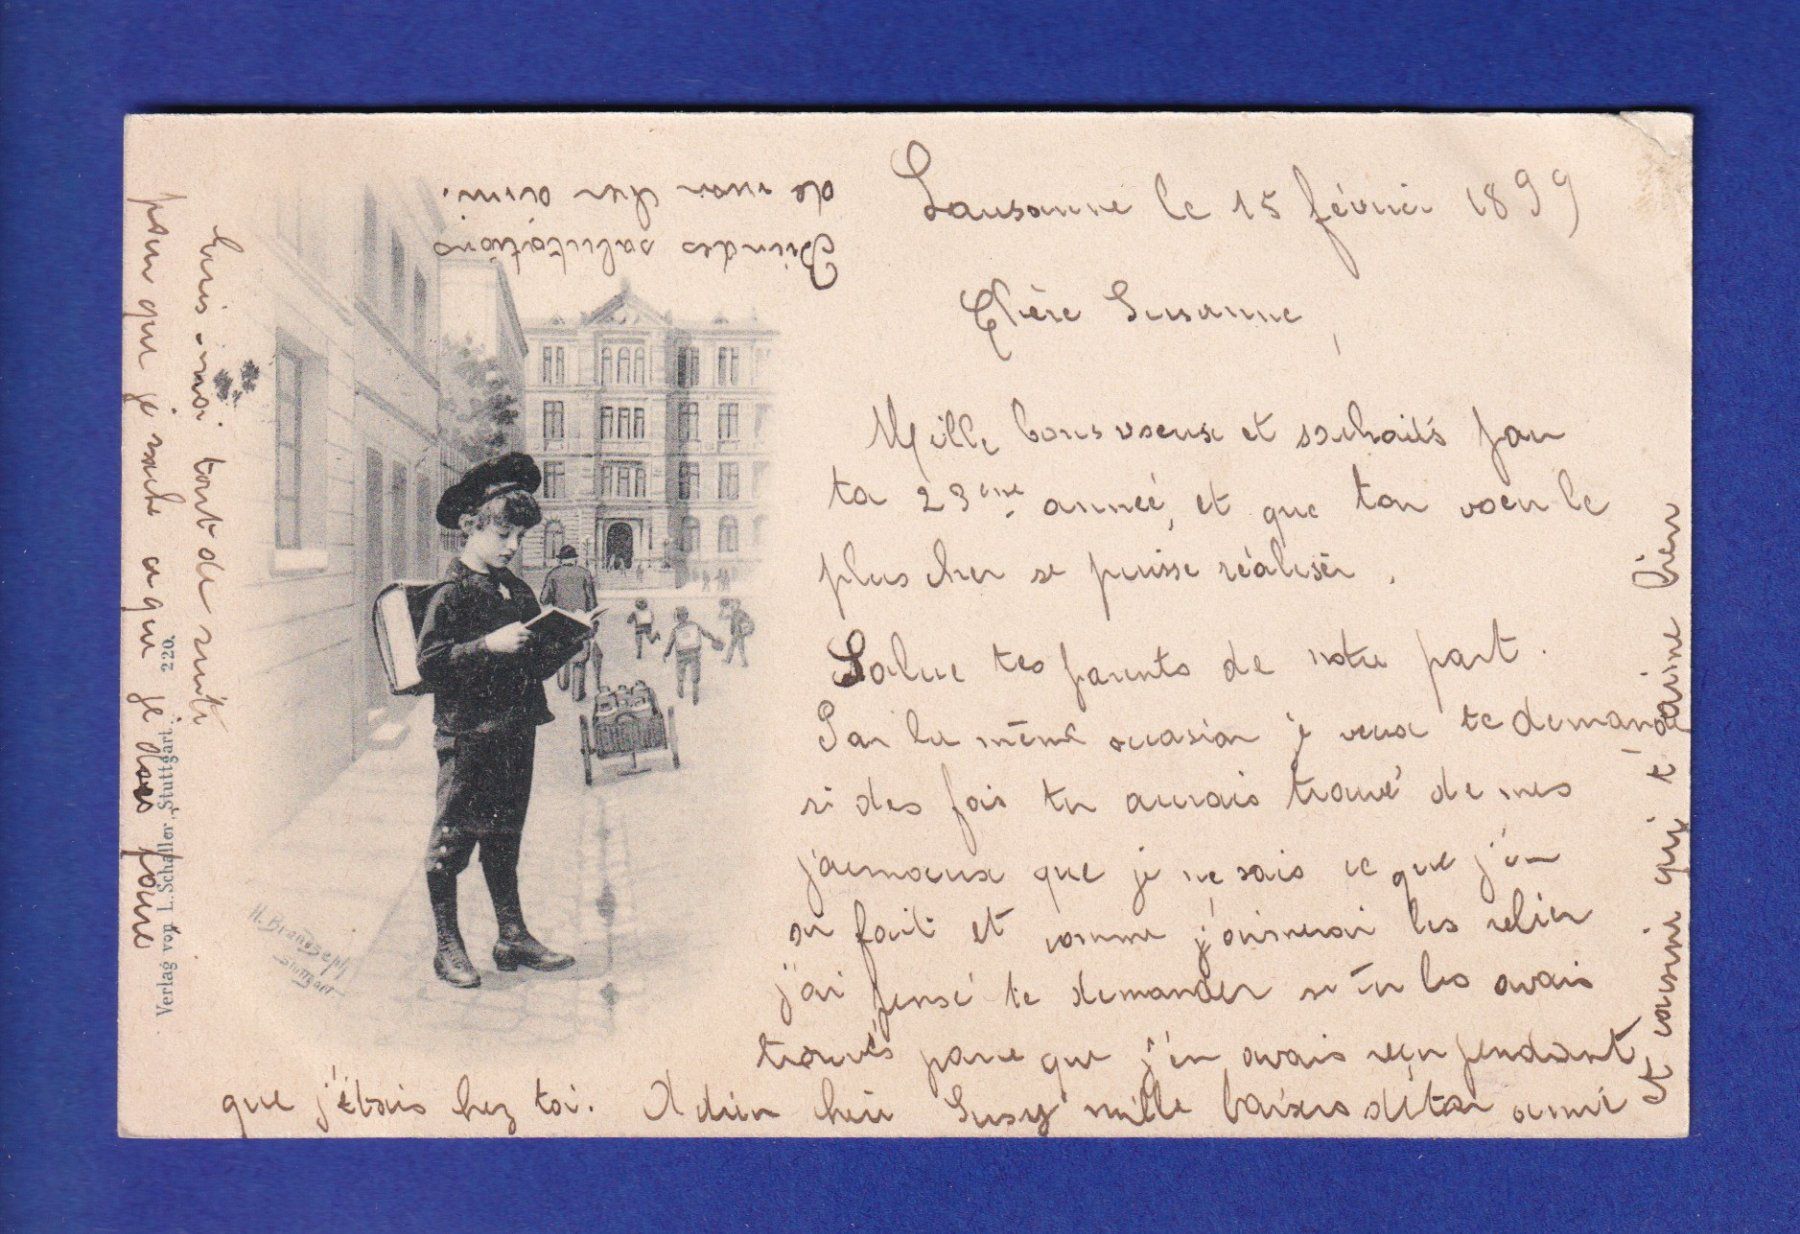 Lausanne le 15 février 1899
Chère Susanne,
Mille bons voeux et souhaits pou
ta 23ème année, et que ton voeu le
plus cher se puisse réaliser.
Salue tes parents de notre part.
Par la même occasion je veux te demande
si des fois tu aurais trouvé de mes
journaux que je ne sais ce que j'en
ai fait et comme j'aimerai les relier
j'ai pensé te demander si tu les avais
trouvés parce que j'en avais reçu pendant
que j'étais chez toi. Adieu chère Susy mille baisers de ta amie
et cousine qui t'aime bien
Ecris-moi tout de suite
pour que je sache a que je dois faire
Grandes salutations
de mon cher ami.
H. Brandseph
Stuttgart
Verlag von L. Schaller, Stuttgart. 220.